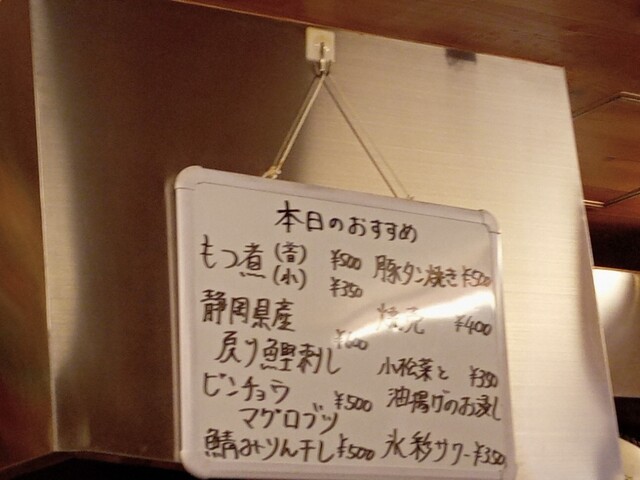 本日のおすすめ
もつ煮(普) ¥500
(小) ¥350
静岡県産
戻り鰹刺し ¥600
ビンチョウ
マグロブツ ¥500
鯖みりん干し ¥500
豚タン焼き ¥500
焼売 ¥400
小松菜と
油揚げのお浸し ¥350
氷彩サワー ¥350